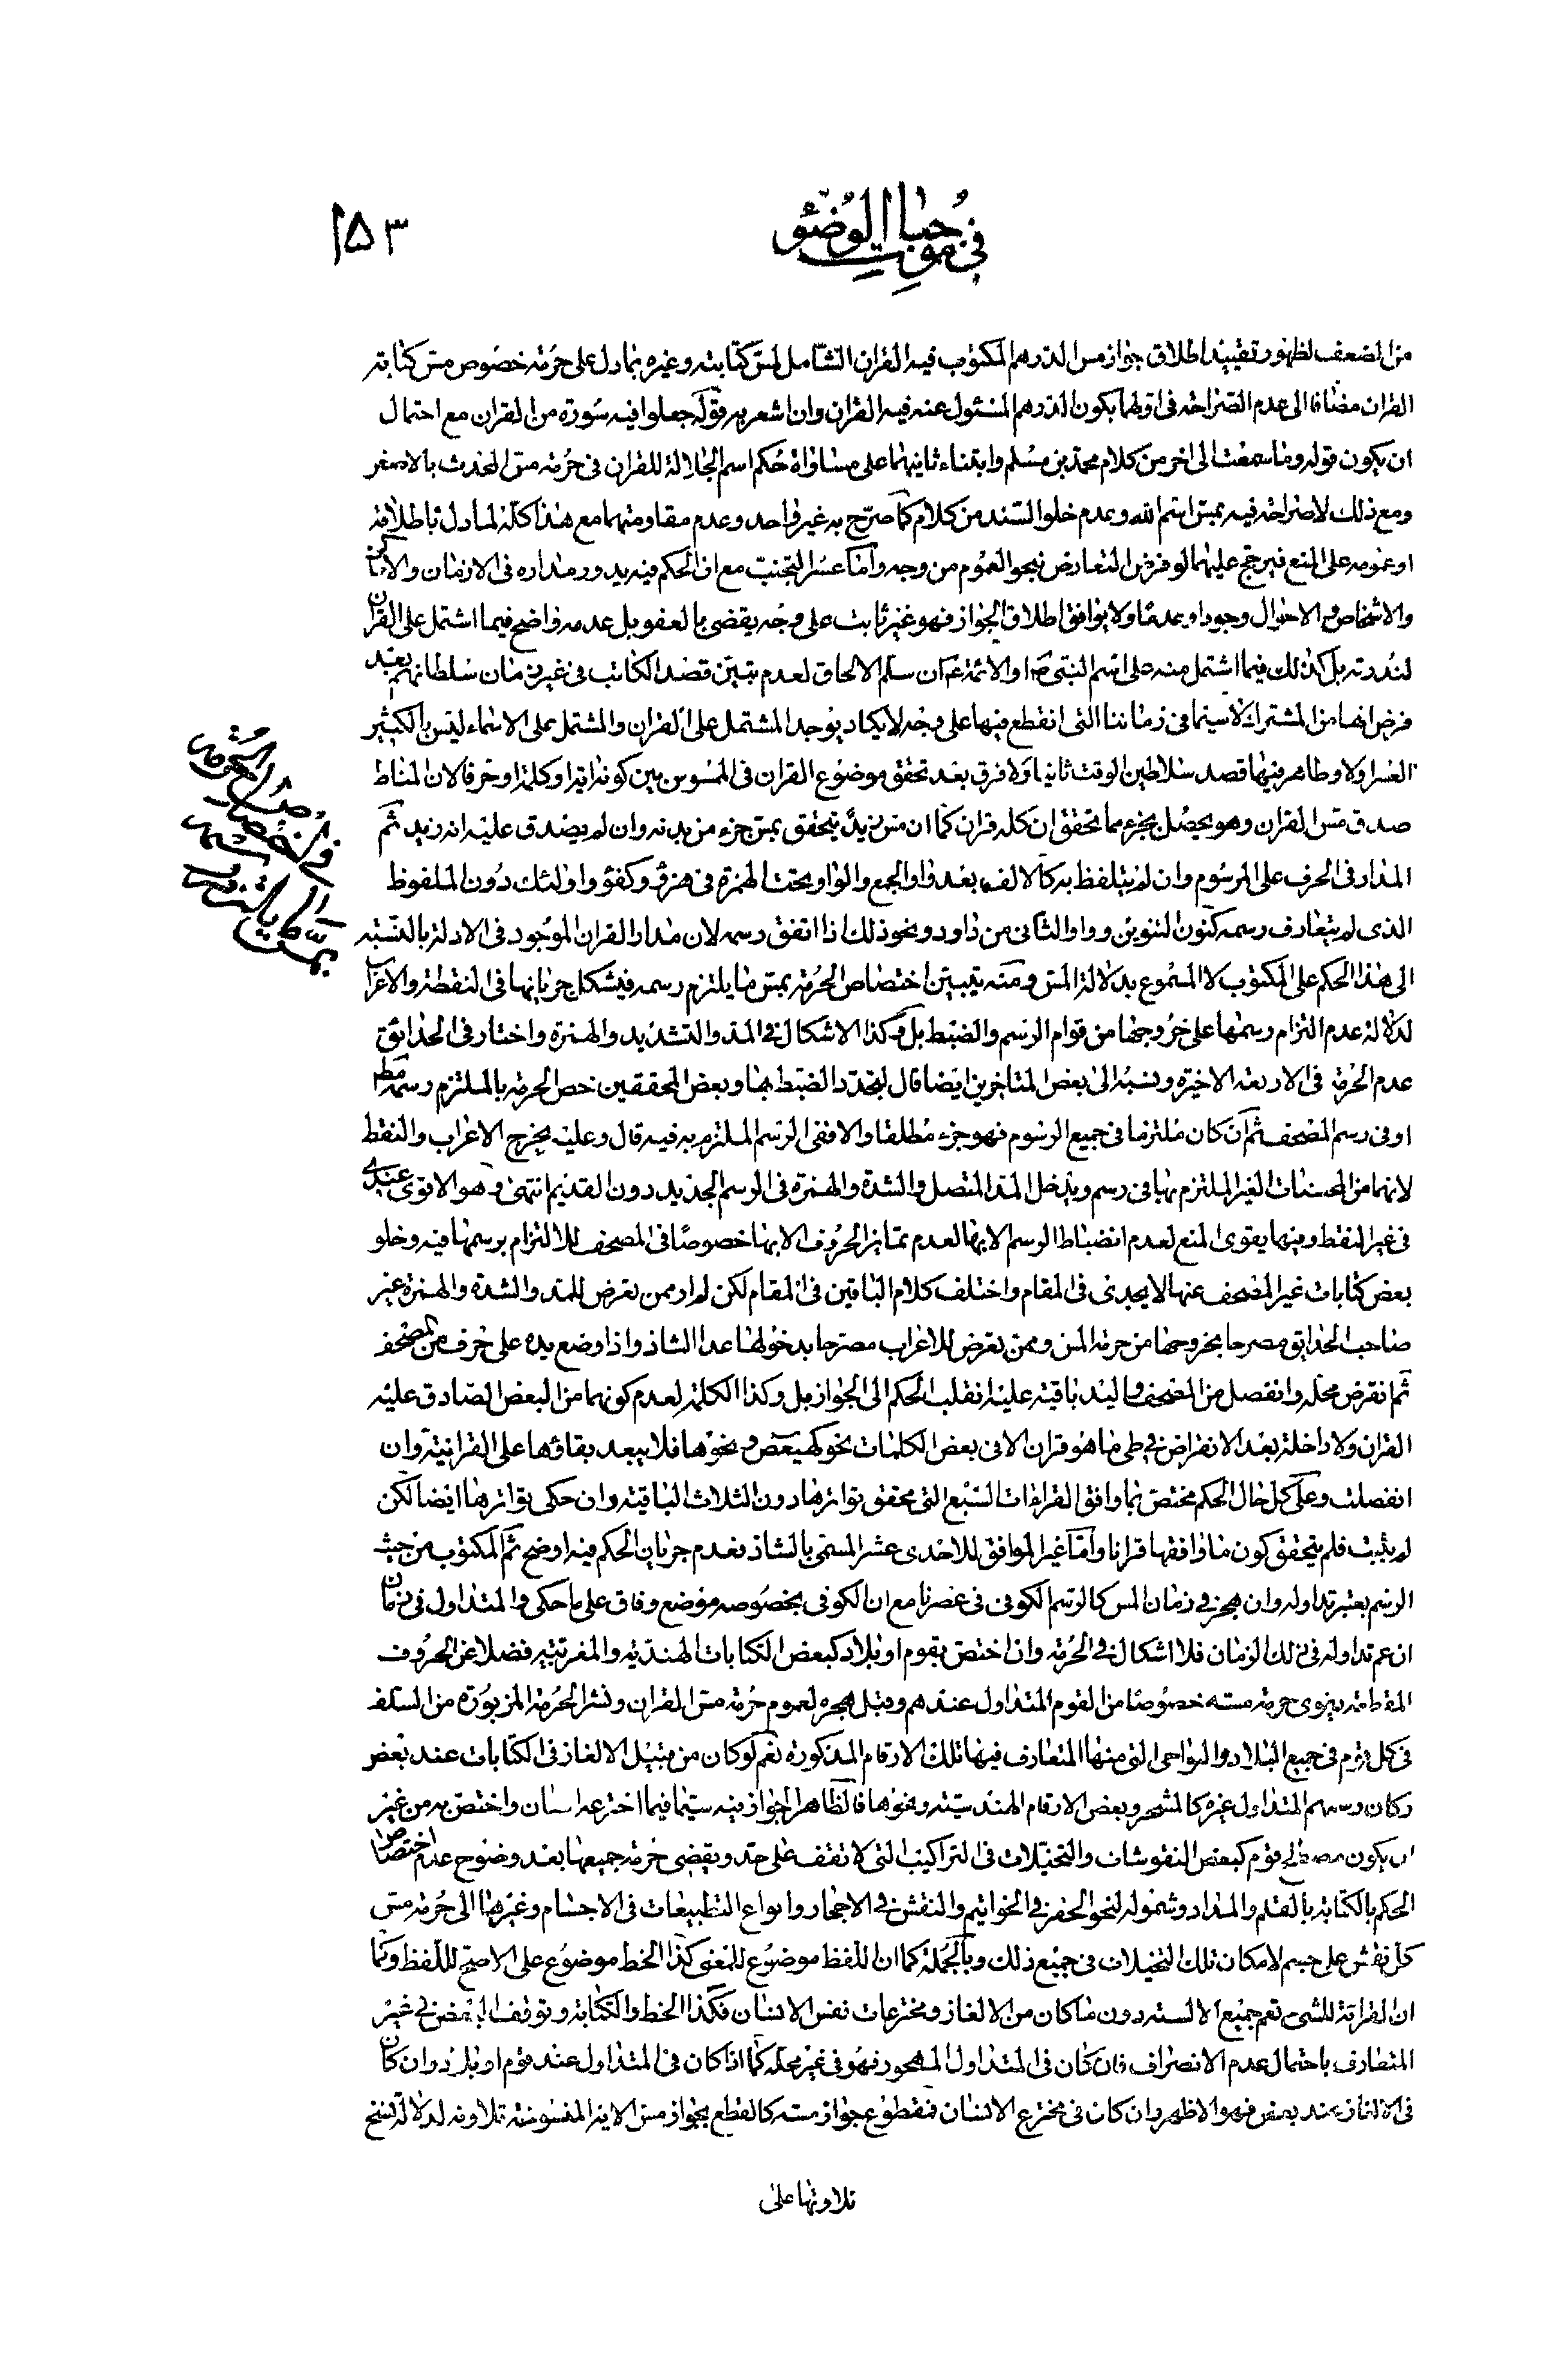 في موجبات الوضوء
١٥٣
من الضعف لظهور تقييد اطلاق جواز مس الدرهم المكتوب فيه القران الشامل لمس كتابته وغيره بما دل على حرمة خصوص مس كتابة
القران مضافا الى عدم الصراحة في اولهما بكون الدرهم المسئول عنه فيه القران وان اشعر به قوله جعلوا فيه سورة من القران مع احتمال
ان يكون قوله وما سمعت الى اخر من كلام محمد بن مسلم وابتناء ثانيهما على مساواة حكم اسم الجلالة للقران في حرمة مس المحدث بالاصغر
ومع ذلك لا صراحة فيه بمس اسم الله وعدم خلو السند من كلام كما صرح به غير واحد وعدم مقاومتهما مع هذا كله لما دل باطلاقه
او عمومه على المنع فيرجح عليهما لو فرض التعارض بنحو العموم من وجه واما عسر التجنب مع ان الحكم فيه يدور مداره في الازمان والاماكن
والاشخاص والاحوال وجودا وعدما ولا يوافق اطلاق الجواز فهو غير ثابت على وجه يقضى بالعفو بل عدمه واضح فيما اشتمل على القران
لندرته بل كذلك فيما اشتمل منه على اسم النبي ص والائمة ع ان سلم الالحاق لعدم تبين قصد الكاتب في غير زمان سلطانهم بعد
فرض انها من المشترك لا سيما في زماننا التي انقطع فيها على وجه لا يكاد يوجد المشتمل على القران والمشتمل على الاسماء ليس بالكثير
العسر اولا وظاهر فيها قصد سلاطين الوقت ثانيا ولا فرق بعد تحقق موضوع القران في الممسوس بين كونه اية او كلمة او حرفا لان المناط
صدق مس القران وهو يحصل بجزء مما تحقق ان كله قران كما ان مس زيد يتحقق بمس جزء من بدنه وان لم يصدق عليه انه زيد ثم
المدار في الحرف على المرسوم وان لم يتلفظ به كالالف بعد واو الجمع والواو تحت الهمزة في هزؤ وكفؤ واولئك دون الملفوظ
الذى لم يتعارف رسمه كنون التنوين وواو الثاني من داود ونحو ذلك اذا اتفق رسمه لان مدار القران الموجود في الادلة بالنسبة
الى هذا الحكم على المكتوب لا المسموع بدلالة المس ومنه يتبين اختصاص الحرمة بمس ما يلتزم رسمه فيشكل جريانها في النقطة والاعراب
لدلالة عدم التزام رسمها على خروجها من قوام الرسم والضبط بل وكذا الاشكال في المد والتشديد والهمزة واختار في الحدائق
عدم الحرمة في الاربعة الاخيرة ونسبه الى بعض المتاخرين ايضا قال لتجدد الضبط بها وبعض المحققين خص الحرمة بالملتزم رسمه مط
او في رسم المصحف ثم ان كان ملتزما في جميع الرسوم فهو جزء مطلقا والا ففى الرسم الملتزم به فيه قال وعليه يخرج الاعراب والنقط
لانهما من المحسنات الغير الملتزم بها في رسم ويدخل المد المتصل والشدة والهمزة في الرسم الجديد دون القديم انتهى وهو الاقوى عندى
في غير النقط وفيها يقوى المنع لعدم انضباط الرسم الا بها لعدم تمايز الحروف الا بها خصوصا في المصحف للالتزام برسمها فيه وخلو
بعض كتابات غير المصحف عنها لا يجدى في المقام واختلف كلام الباقين في المقام لكن لم ار ممن تعرض للمد والشدة والهمزة غير
صاحب الحدائق مصرحا بخروجها من حرمة المس وممن تعرض للاعراب مصرحا بدخولها عدا الشاذ واذا وضع يده على حرف من المصحف
ثم انقرض محله وانفصل من المصحف واليد باقية عليه انقلب الحكم الى الجواز بل وكذا الكلمة لعدم كونهما من البعض الصادق عليه
القران ولا داخلة بعد الانقراض في طى ما هو قران الا في بعض الكلمات نحو كهيعص ونحوها فلا يبعد بقاؤها على القرانية وان
انفصلت وعلى كل حال الحكم مختص بما وافق القراءات السبع التي محقق تواترها دون الثلاث الباقية وان حكى تواترها ايضا لكن
لم يثبت فلم يتحقق كون ما وافقها قرانا واما غير الموافق للاحدى عشر المسمى بالشاذ فعدم جريان الحكم فيه اوضح ثم المكتوب من حيث
الرسم يعتبر تداوله وان هجر في زمان المس كالرسم الكوفى في عصرنا مع ان الكوفى بخصوصه موضع وفاق على ما حكى والمتداول في زمان
ان عم تداوله في ذلك الزمان فلا اشكال في الحرمة وان اختص بقوم او بلاد كبعض الكتابات الهندية والمغربية فضلا عن الحروف
المقطعة يقوى حرمة مسه خصوصا من القوم المتداول عندهم وقبل هجره لعموم حرمة مس القران ونشر الحرمة المزبورة من السلف
في كل قوم في جميع البلاد والنواحى التي منها المتعارف فيها تلك الارقام المذكورة نعم لو كان من قبيل الالغاز في الكتابات عند بعض
وكان رسمهم المتداول غيره كالمشجر وبعض الارقام الهندسية ونحوها فالظاهر الجواز فيه سيما فيما اخترعه انسان واختص به من غير
ان يكون قوم كبعض النقوشات والتخيلات في التراكيب التي لا تقف على حد ويقضى حرمة جميعها بعد وضوح عدم اختصاص
الحكم بالكتابة بالقلم والمداد وشموله لنحو الحفر في الخواتيم والنقش في الاحجار وانواع التطبيعات في الاجسام وغيرها الى حرمة مس
كل نقش على جسم لامكان تلك التخيلات في جميع ذلك وبالجملة كما ان اللفظ موضوع للمعنى كذا الخط موضوع على الاصح للفظ وكما
ان القراءة للشئ تعم جميع الالسنة دون ما كان من الالغاز ومخترعات نفس الانسان فكذا الخط والكتابة وتوقف البعض في غير
المتعارف باحتمال عدم الانصراف فان كان في المتداول المهجور فهو في غير محله كما اذا كان في المتداول عند قوم او بلاد وان كان
في الالغاز عند بعض فهو الاظهر وان كان في مخترع الانسان فمقطوع بجواز مسه كالقطع بجواز مس الاية المنسوخة تلاوته لدلالة نسخ
تلاوتها على